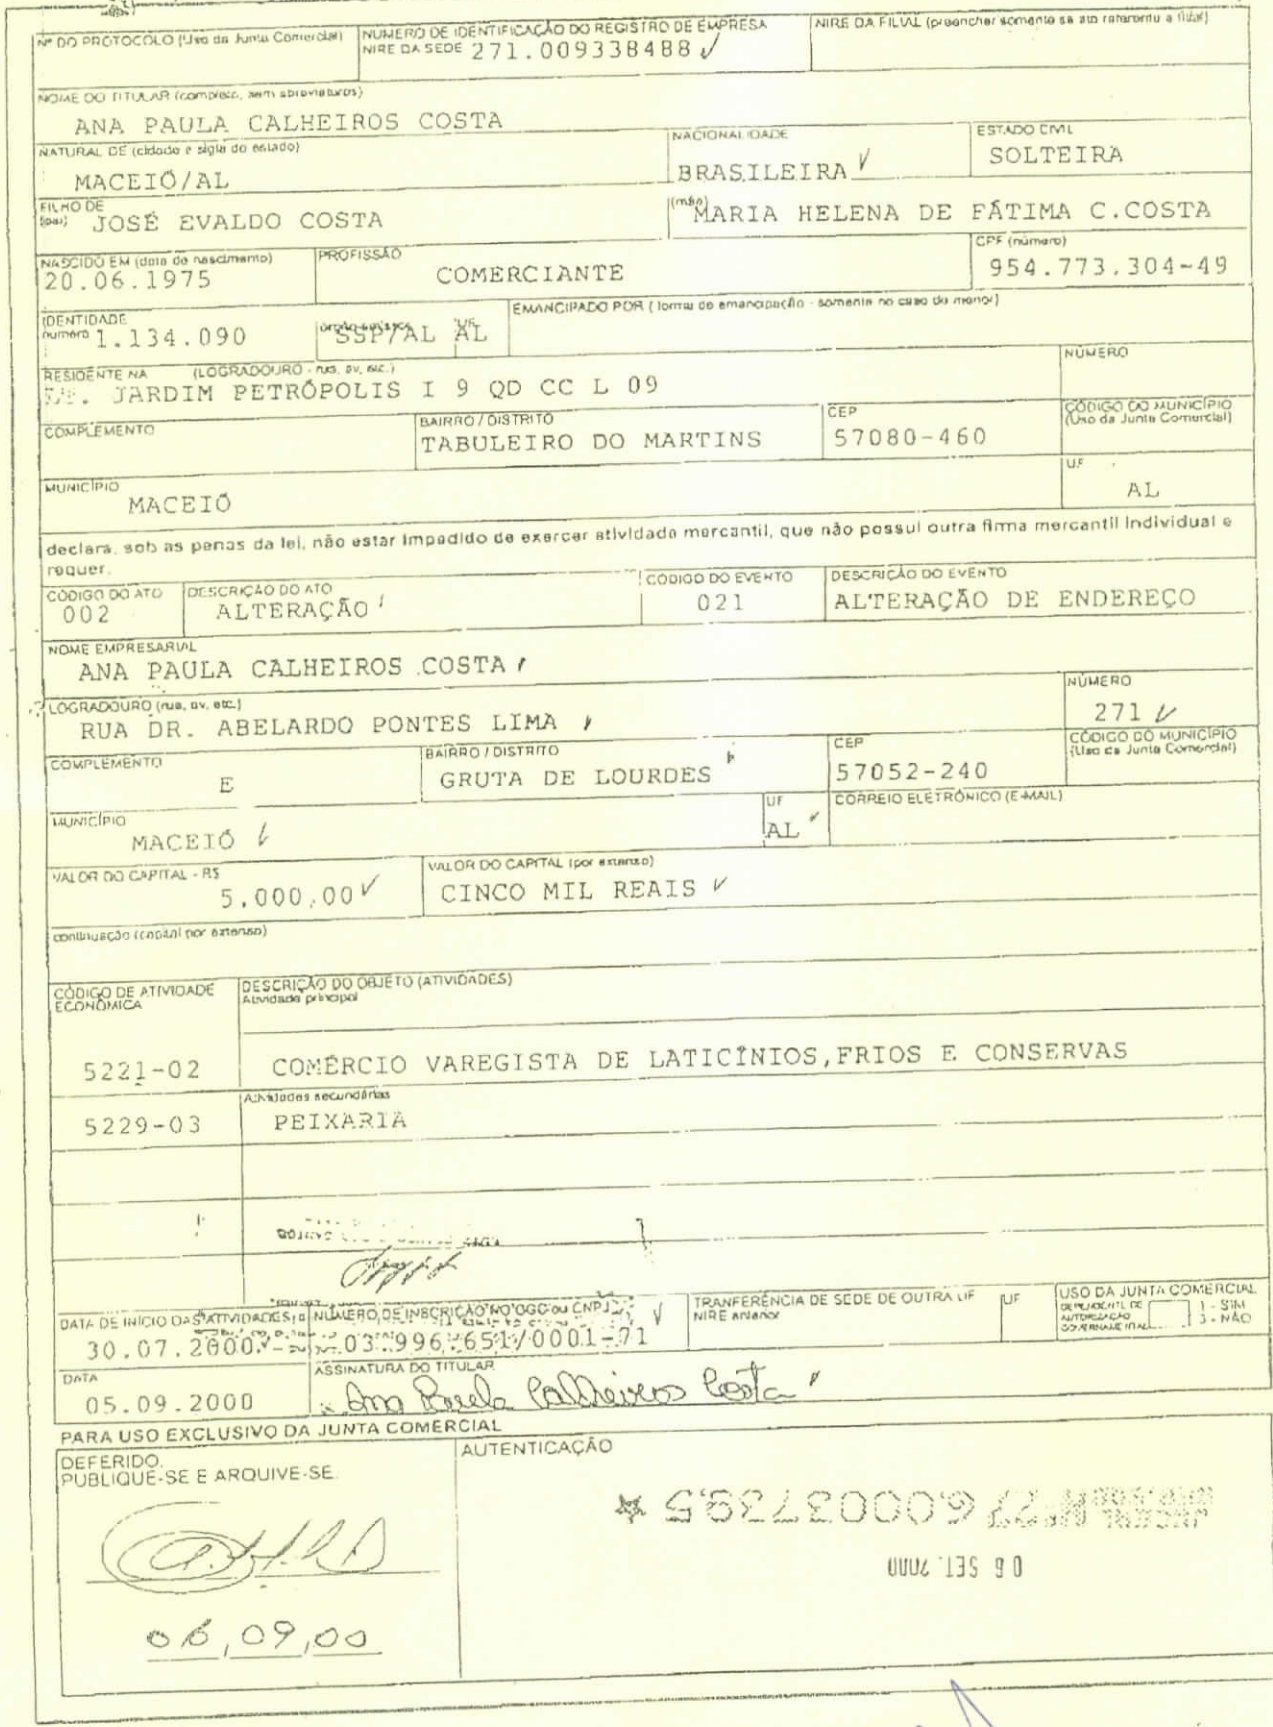 Nº DO PROTOCOLO (Uso da Junta Comercial)
NÚMERO DE IDENTIFICAÇÃO DO REGISTRO DE EMPRESA
NIRE DA SEDE 271.009338488
NIRE DA FILIAL (preencher somente se ato referente a filial)
NOME DO TITULAR (completo, sem abreviaturas)
ANA PAULA CALHEIROS COSTA
NATURAL DE (cidade e sigla do estado)
MACEIÓ/AL
NACIONALIDADE
BRASILEIRA
ESTADO CIVIL
SOLTEIRA
FILHO DE
(pai) JOSÉ EVALDO COSTA
(mãe) MARIA HELENA DE FÁTIMA C.COSTA
NASCIDO EM (data de nascimento)
20.06.1975
PROFISSÃO
COMERCIANTE
CPF (número)
954.773.304-49
IDENTIDADE
número 1.134.090
SSP/AL
UF
AL
EMANCIPADO POR (forma de emancipação - somente no caso de menor)
RESIDENTE NA (LOGRADOURO - rua, av, etc.)
JARDIM PETRÓPOLIS I 9 QD CC L 09
NÚMERO
COMPLEMENTO
BAIRRO / DISTRITO
TABULEIRO DO MARTINS
CEP
57080-460
CÓDIGO DO MUNICÍPIO
(Uso da Junta Comercial)
MUNICÍPIO
MACEIÓ
UF
AL
declara, sob as penas da lei, não estar impedido de exercer atividade mercantil, que não possui outra firma mercantil individual e
requer.
CÓDIGO DO ATO
002
DESCRIÇÃO DO ATO
ALTERAÇÃO
CÓDIGO DO EVENTO
021
DESCRIÇÃO DO EVENTO
ALTERAÇÃO DE ENDEREÇO
NOME EMPRESARIAL
ANA PAULA CALHEIROS COSTA
LOGRADOURO (rua, av, etc.)
RUA DR. ABELARDO PONTES LIMA
NÚMERO
271
COMPLEMENTO
E
BAIRRO / DISTRITO
GRUTA DE LOURDES
CEP
57052-240
CÓDIGO DO MUNICÍPIO
(Uso da Junta Comercial)
MUNICÍPIO
MACEIÓ
UF
AL
CORREIO ELETRÔNICO (E-MAIL)
VALOR DO CAPITAL - R$
5.000,00
VALOR DO CAPITAL (por extenso)
CINCO MIL REAIS
continuação (capital por extenso)
CÓDIGO DE ATIVIDADE
ECONÔMICA
DESCRIÇÃO DO OBJETO (ATIVIDADES)
Atividade principal
5221-02
COMÉRCIO VAREGISTA DE LATICÍNIOS,FRIOS E CONSERVAS
Atividades secundárias
5229-03
PEIXARIA
DATA DE INÍCIO DAS ATIVIDADES
30.07.2000
NÚMERO DE INSCRIÇÃO NO CGC ou CNPJ
03.996.651/0001-71
TRANFERÊNCIA DE SEDE DE OUTRA UF
NIRE anterior
UF
USO DA JUNTA COMERCIAL
DEPENDENTE DE
AUTORIZAÇÃO
GOVERNAMENTAL
1 - SIM
3 - NÃO
DATA
05.09.2000
ASSINATURA DO TITULAR
Ana Paula Calheiros Costa
PARA USO EXCLUSIVO DA JUNTA COMERCIAL
DEFERIDO.
PUBLIQUE-SE E ARQUIVE-SE.
06,09,00
AUTENTICAÇÃO
06 SET. 2000